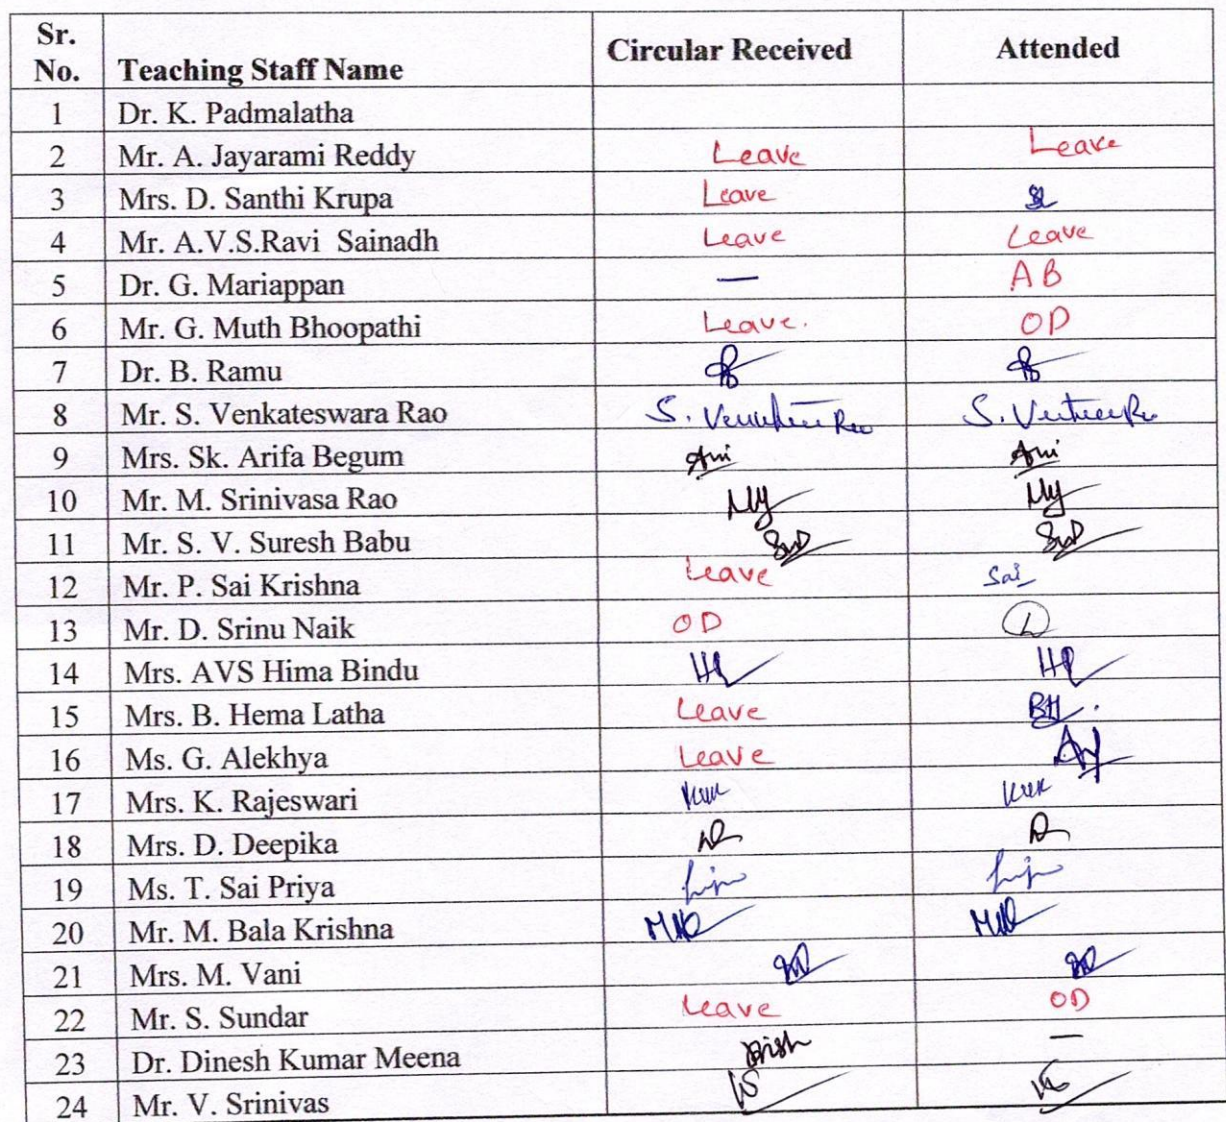 Sr. No. Teaching Staff Name Circular Received Attended
1 Dr. K. Padmalatha
2 Mr. A. Jayarami Reddy Leave Leave
3 Mrs. D. Santhi Krupa Leave
4 Mr. A.V.S.Ravi Sainadh Leave Leave
5 Dr. G. Mariappan — AB
6 Mr. G. Muth Bhoopathi Leave. OD
7 Dr. B. Ramu
8 Mr. S. Venkateswara Rao S. S.
9 Mrs. Sk. Arifa Begum
10 Mr. M. Srinivasa Rao
11 Mr. S. V. Suresh Babu
12 Mr. P. Sai Krishna Leave Sai
13 Mr. D. Srinu Naik OD
14 Mrs. AVS Hima Bindu
15 Mrs. B. Hema Latha Leave BH.
16 Ms. G. Alekhya Leave
17 Mrs. K. Rajeswari
18 Mrs. D. Deepika
19 Ms. T. Sai Priya
20 Mr. M. Bala Krishna
21 Mrs. M. Vani
22 Mr. S. Sundar Leave OD
23 Dr. Dinesh Kumar Meena —
24 Mr. V. Srinivas